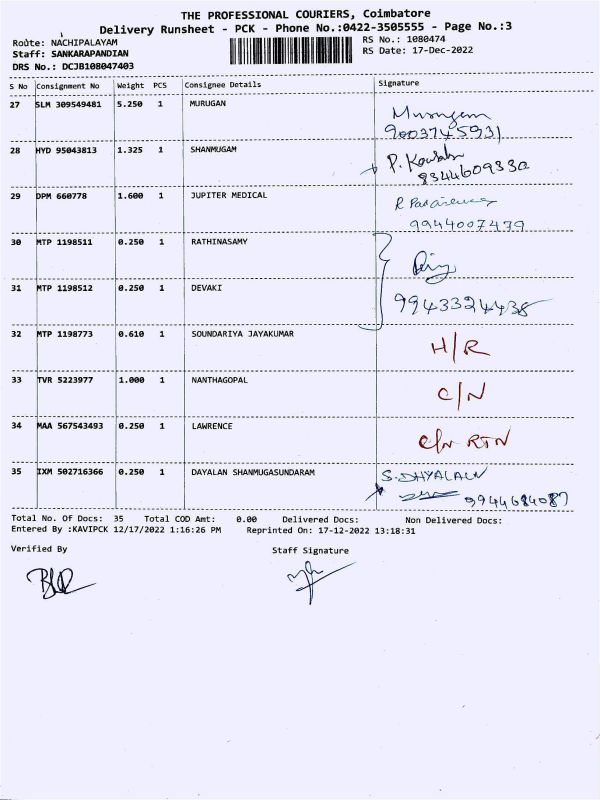 THE PROFESSIONAL COURIERS, Coimbatore
Delivery Runsheet - PCK - Phone No.:0422-3505555 - Page No.:3
Route: NACHIPALAYAM RS No.: 1080474
Staff: SANKARAPANDIAN RS Date: 17-Dec-2022
DRS No.: DCJB108047403
S No Consignment No Weight PCS Consignee Details Signature
27 SLM 309549481 5.250 1 MURUGAN Murugan
9003745931
28 HYD 95043813 1.325 1 SHANMUGAM P.
8344609330
29 DPM 660778 1.600 1 JUPITER MEDICAL R
9944007439
30 MTP 1198511 0.250 1 RATHINASAMY
31 MTP 1198512 0.250 1 DEVAKI 9943324438
32 MTP 1198773 0.610 1 SOUNDARIYA JAYAKUMAR H/R
33 TVR 5223977 1.000 1 NANTHAGOPAL C/N
34 MAA 567543493 0.250 1 LAWRENCE C/N RTN
35 IXM 502716366 0.250 1 DAYALAN SHANMUGASUNDARAM S.DHYALALN
9944684087
Total No. Of Docs: 35 Total COD Amt: 0.00 Delivered Docs: Non Delivered Docs:
Entered By :KAVIPCK 12/17/2022 1:16:26 PM Reprinted On: 17-12-2022 13:18:31
Verified By Staff Signature